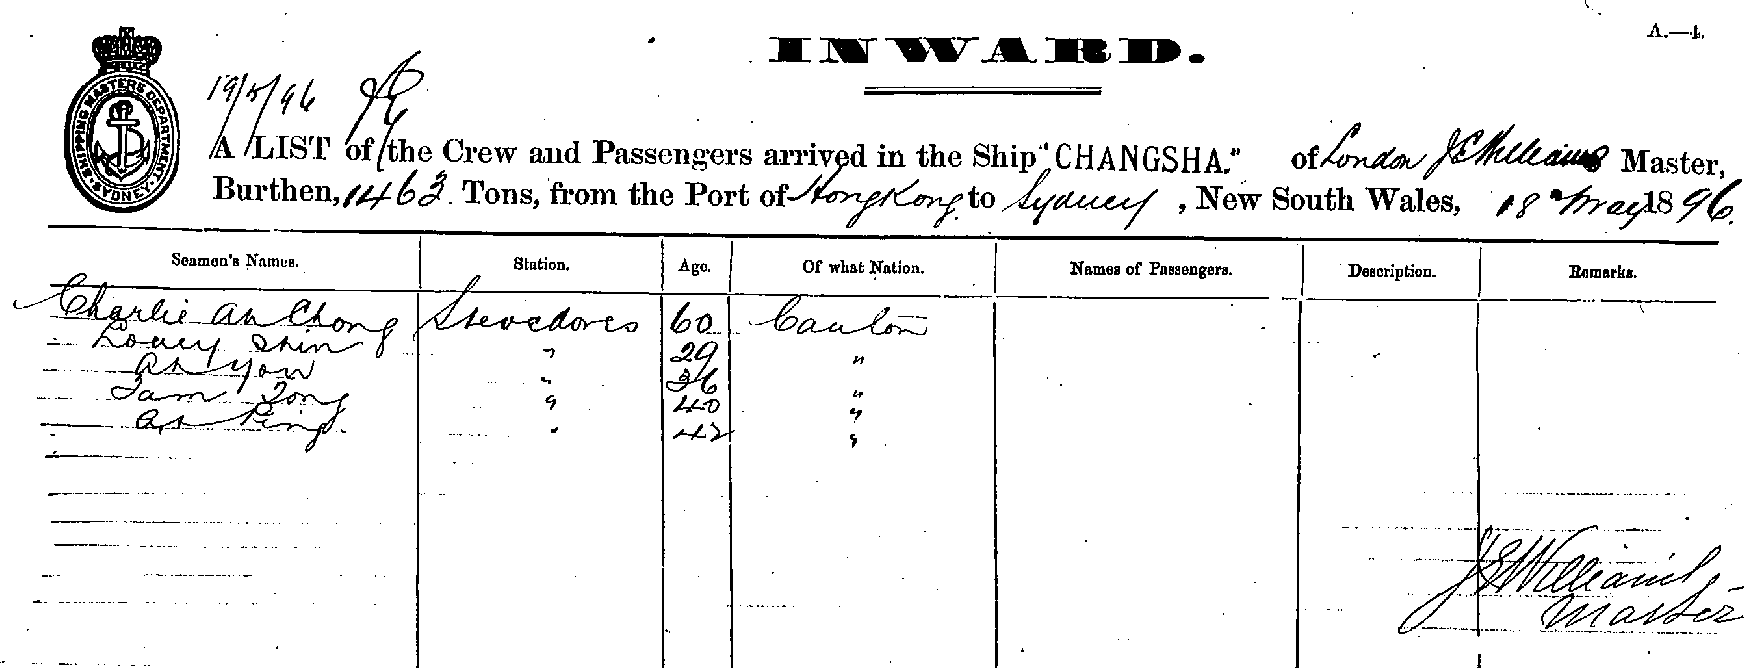 A.—4.
INWARD.
SHIPPING MASTERS DEPARTMENT. SYDNEY.
19/5/96
A LIST of the Crew and Passengers arrived in the Ship "CHANGSHA." of London J E Williams Master,
Burthen, 1463 Tons, from the Port of Hong Kong to Sydney, New South Wales, 18 May 1896.
Seamen's Names. Station. Age. Of what Nation. Names of Passengers. Description. Remarks.
Charlie Ah Chong Stevedores 60 Canton
Louey Shin " 29 "
Ah You " 36 "
Tam Tong " 40 "
Ah Ping. " 42 "
J E Williams
Master